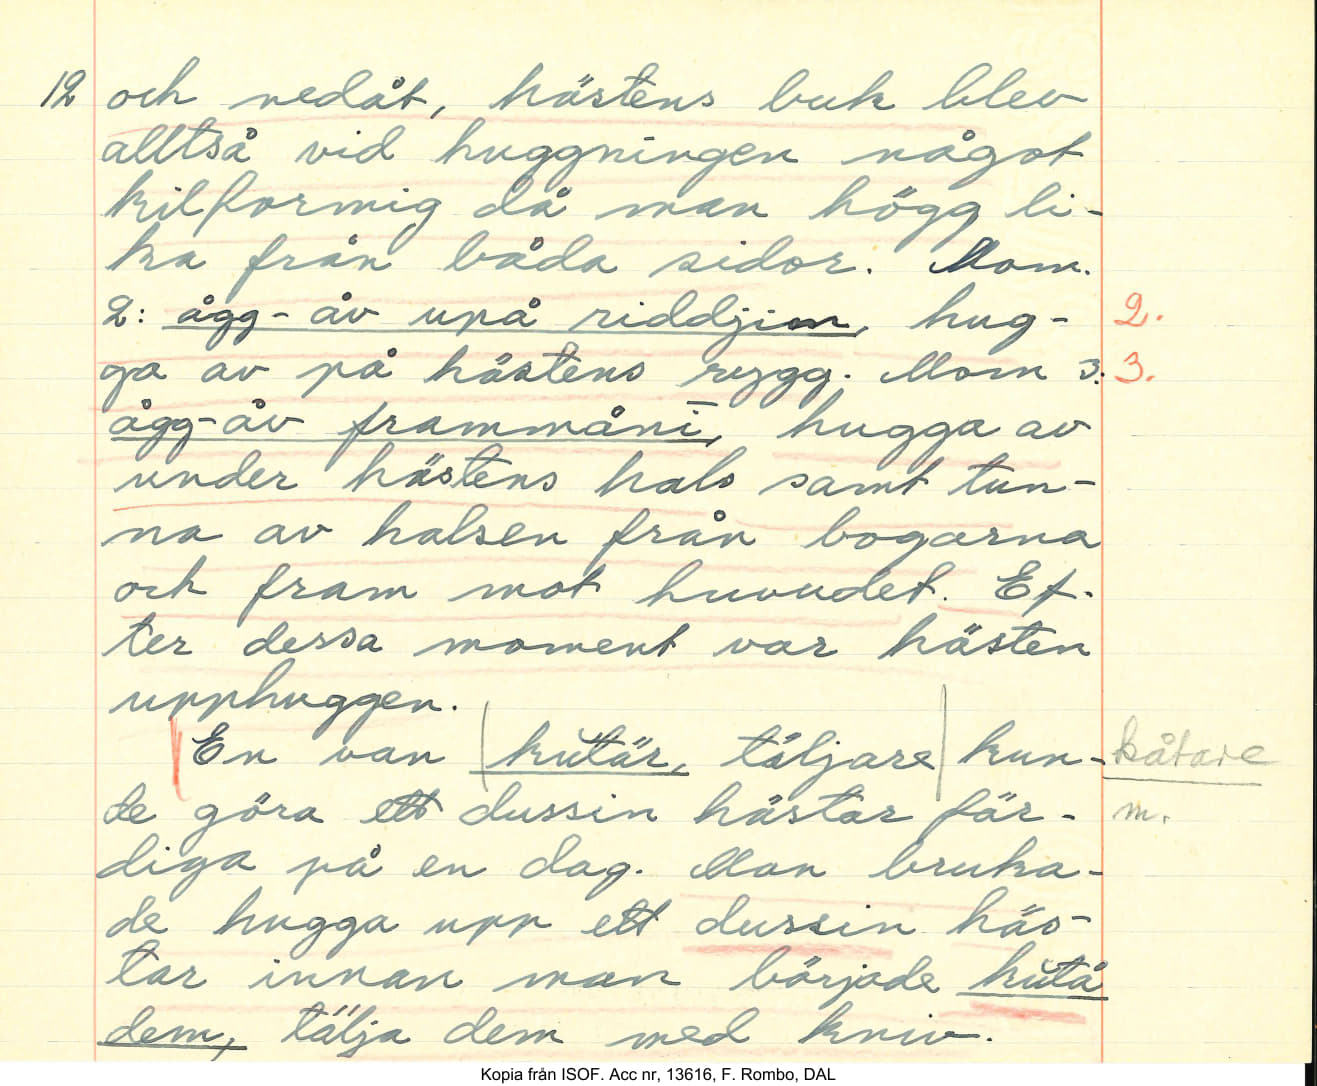 12 och nedåt, hästens buk blev
alltså vid huggningen något
kilformig då man högg li-
ka från båda sidor. Mom.
2: ågg-åv upå riddjim, hug- 2.
ga av på hästens rygg. Mom 3: 3.
ågg-åv frammånī, hugga av
under hästens hals samt tun-
na av halsen från bogarna
och fram mot huvudet. Ef-
ter dessa moment var hästen
upphuggen.
En van kŭtär, täljare kun- kåtare
de göra ett dussin hästar fär- m.
diga på en dag. Man bruka-
de hugga upp ett dussin häs-
tar innan man började kŭtå
dem, tälja dem med kniv.
Kopia från ISOF. Acc nr, 13616, F. Rombo, DAL